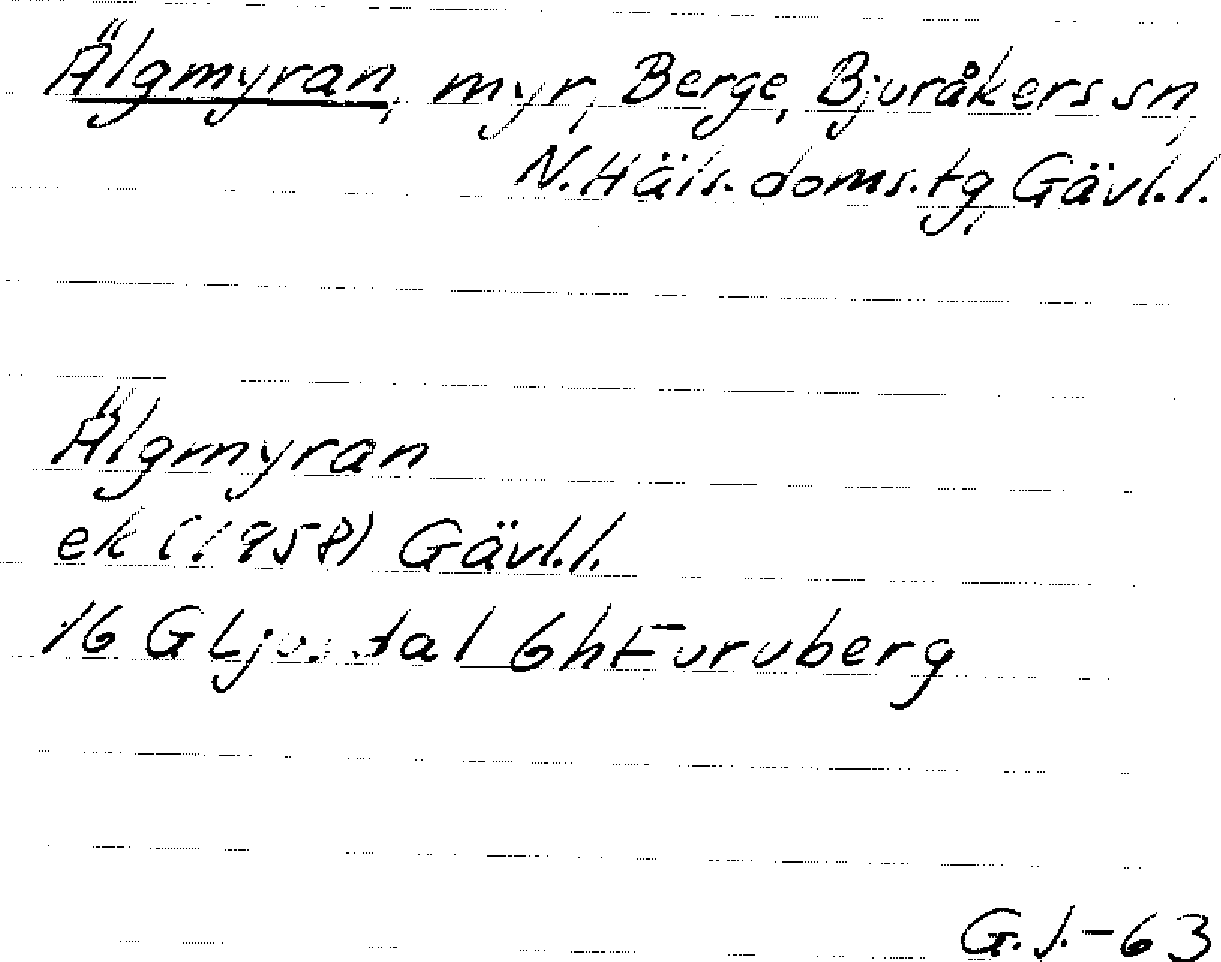 Älgmyran, myr, Berge, Bjuråkers sn,
N. Häls. doms. tg, Gävl. l.
Älgmyran
ek (1958) Gävl. l.
16 G Ljusdal 6h Furuberg
G. J. -63